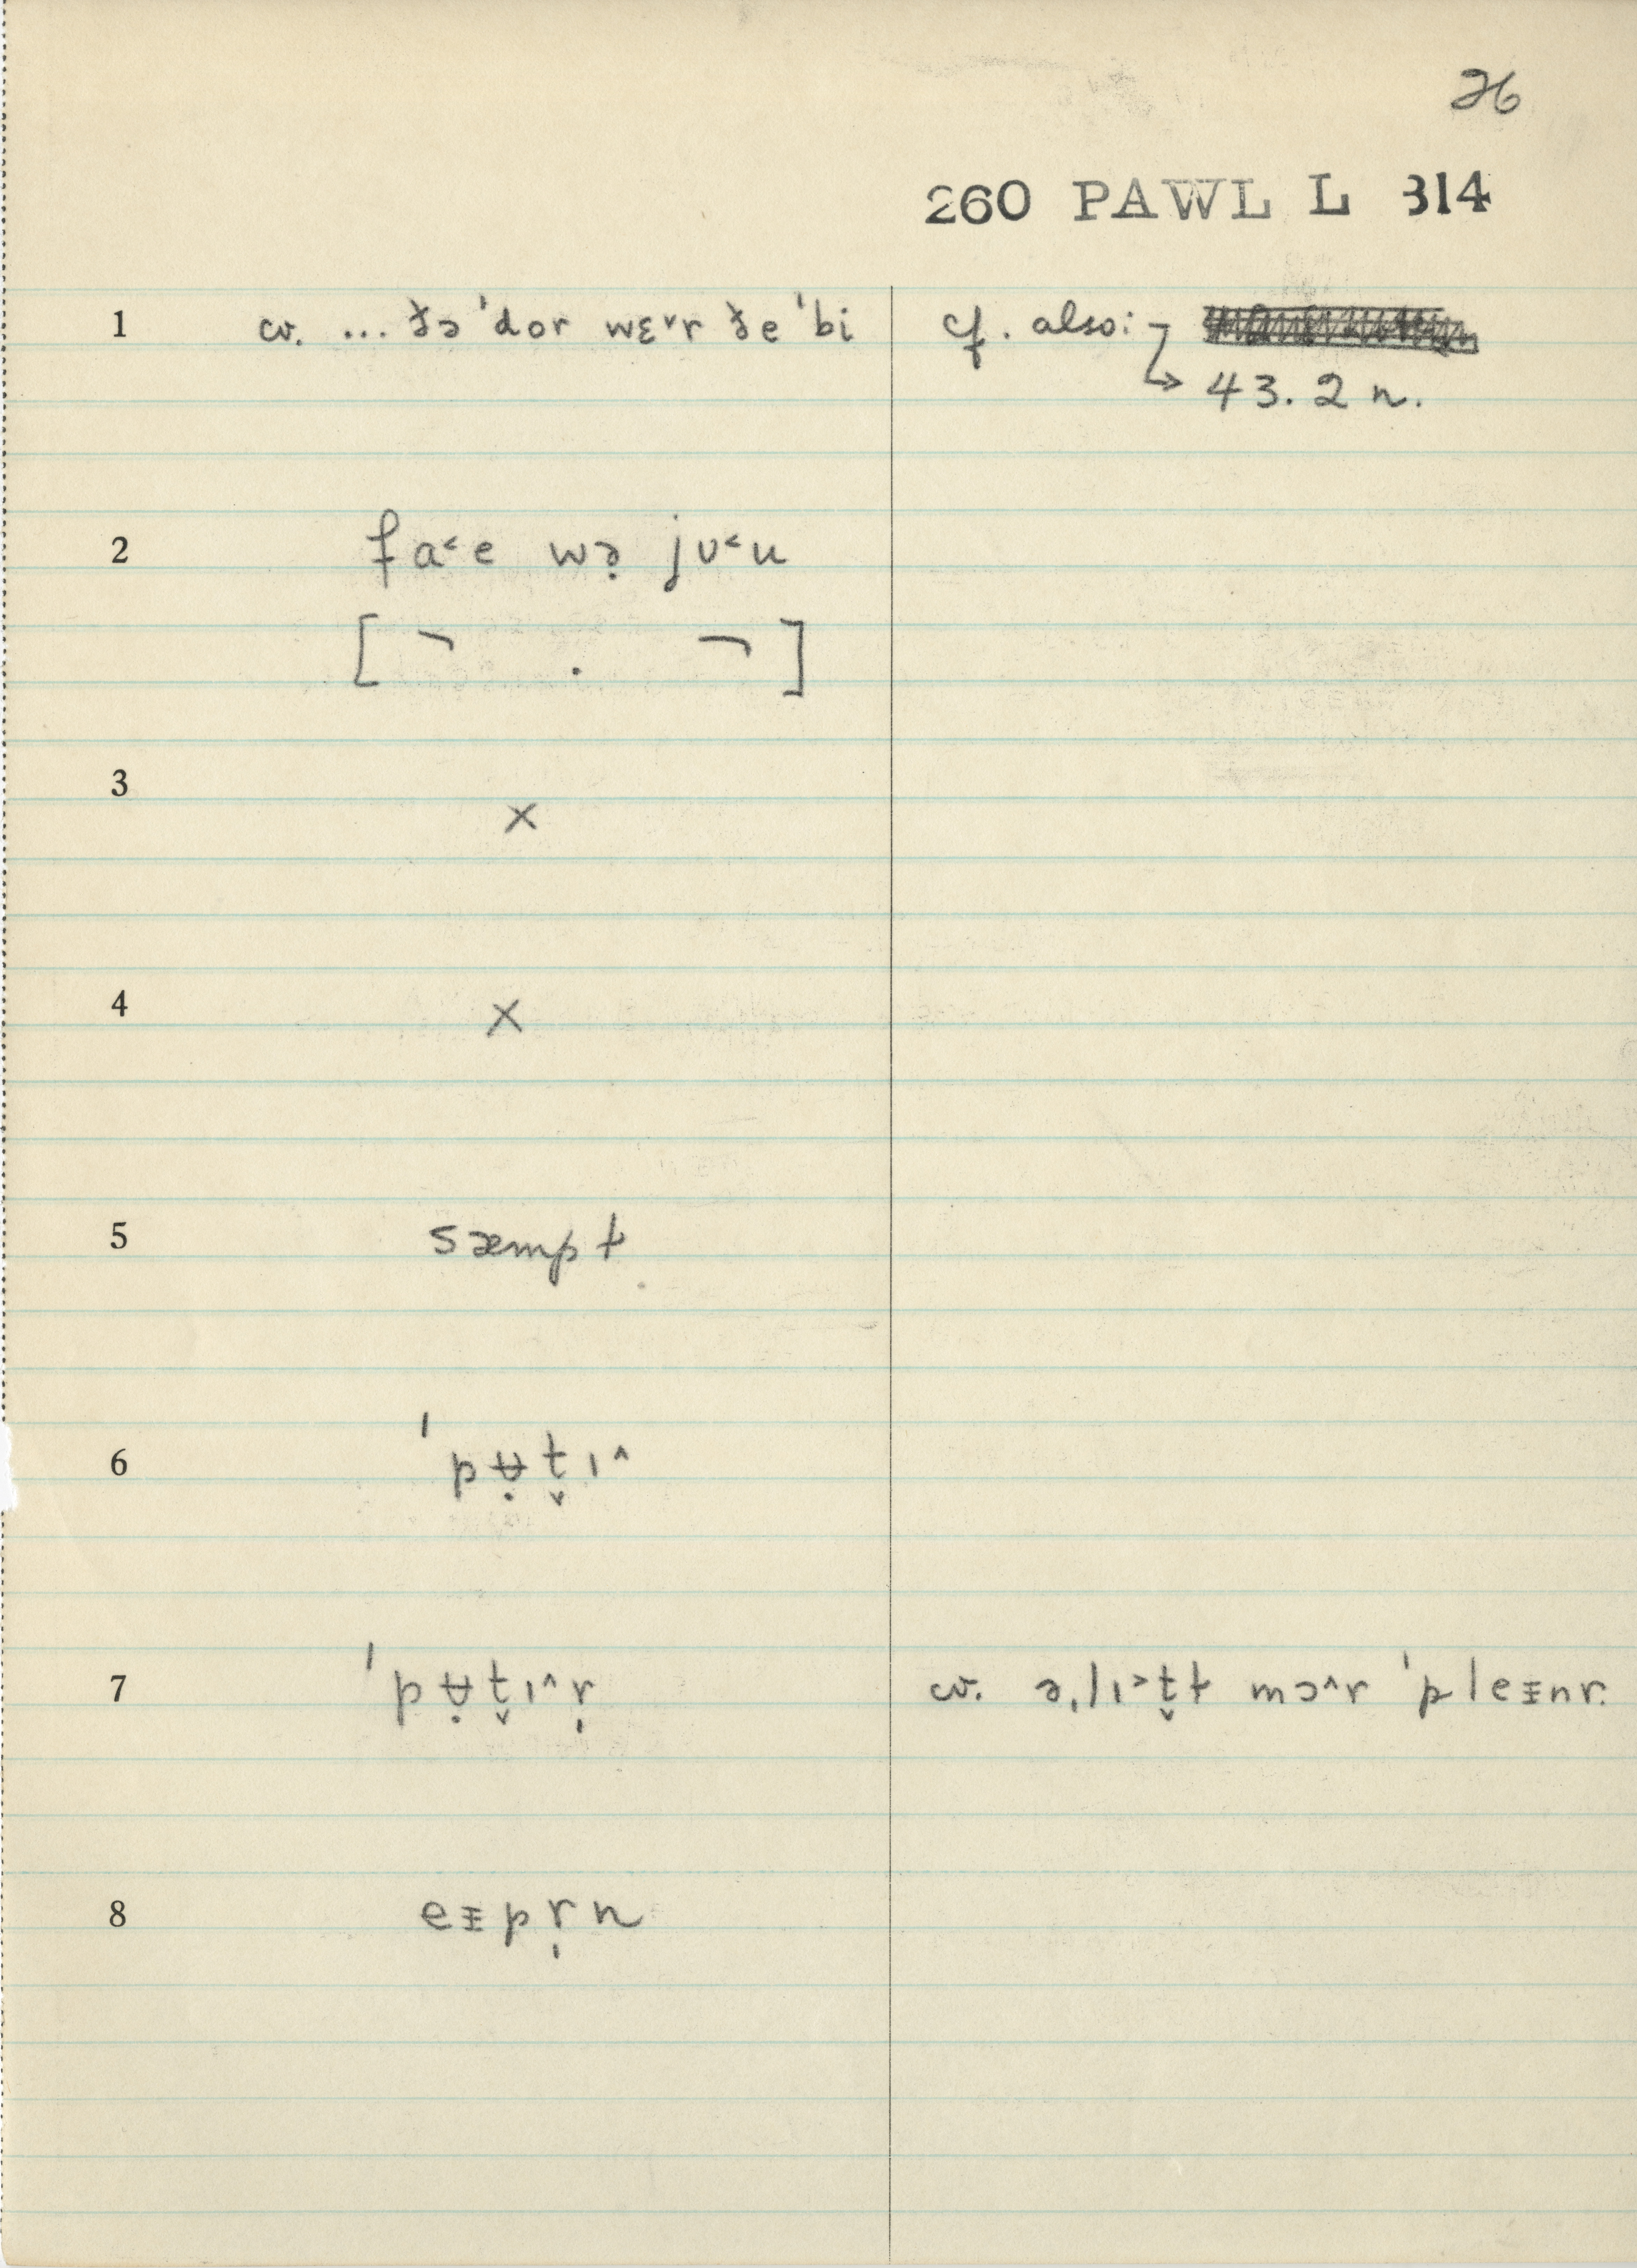 26
260 PAWL L 314
1 cv. ... ðə ˈdor wɛ˅r ðe ˈbi cf. also:
→ 43.2 n.
2 fa˂e wə̣ jʊ˂u
[ ¬ . ¬ ]
3 ×
4 ×
5 sæmpt
6 ˈpʉ̣t̬ɪ˄
7 ˈpʉ̣t̬ɪ˄r̩ cv. əˌlɪ˃t̬t mɔ˄r ˈpleᵻnr.
8 eᵻpr̩n